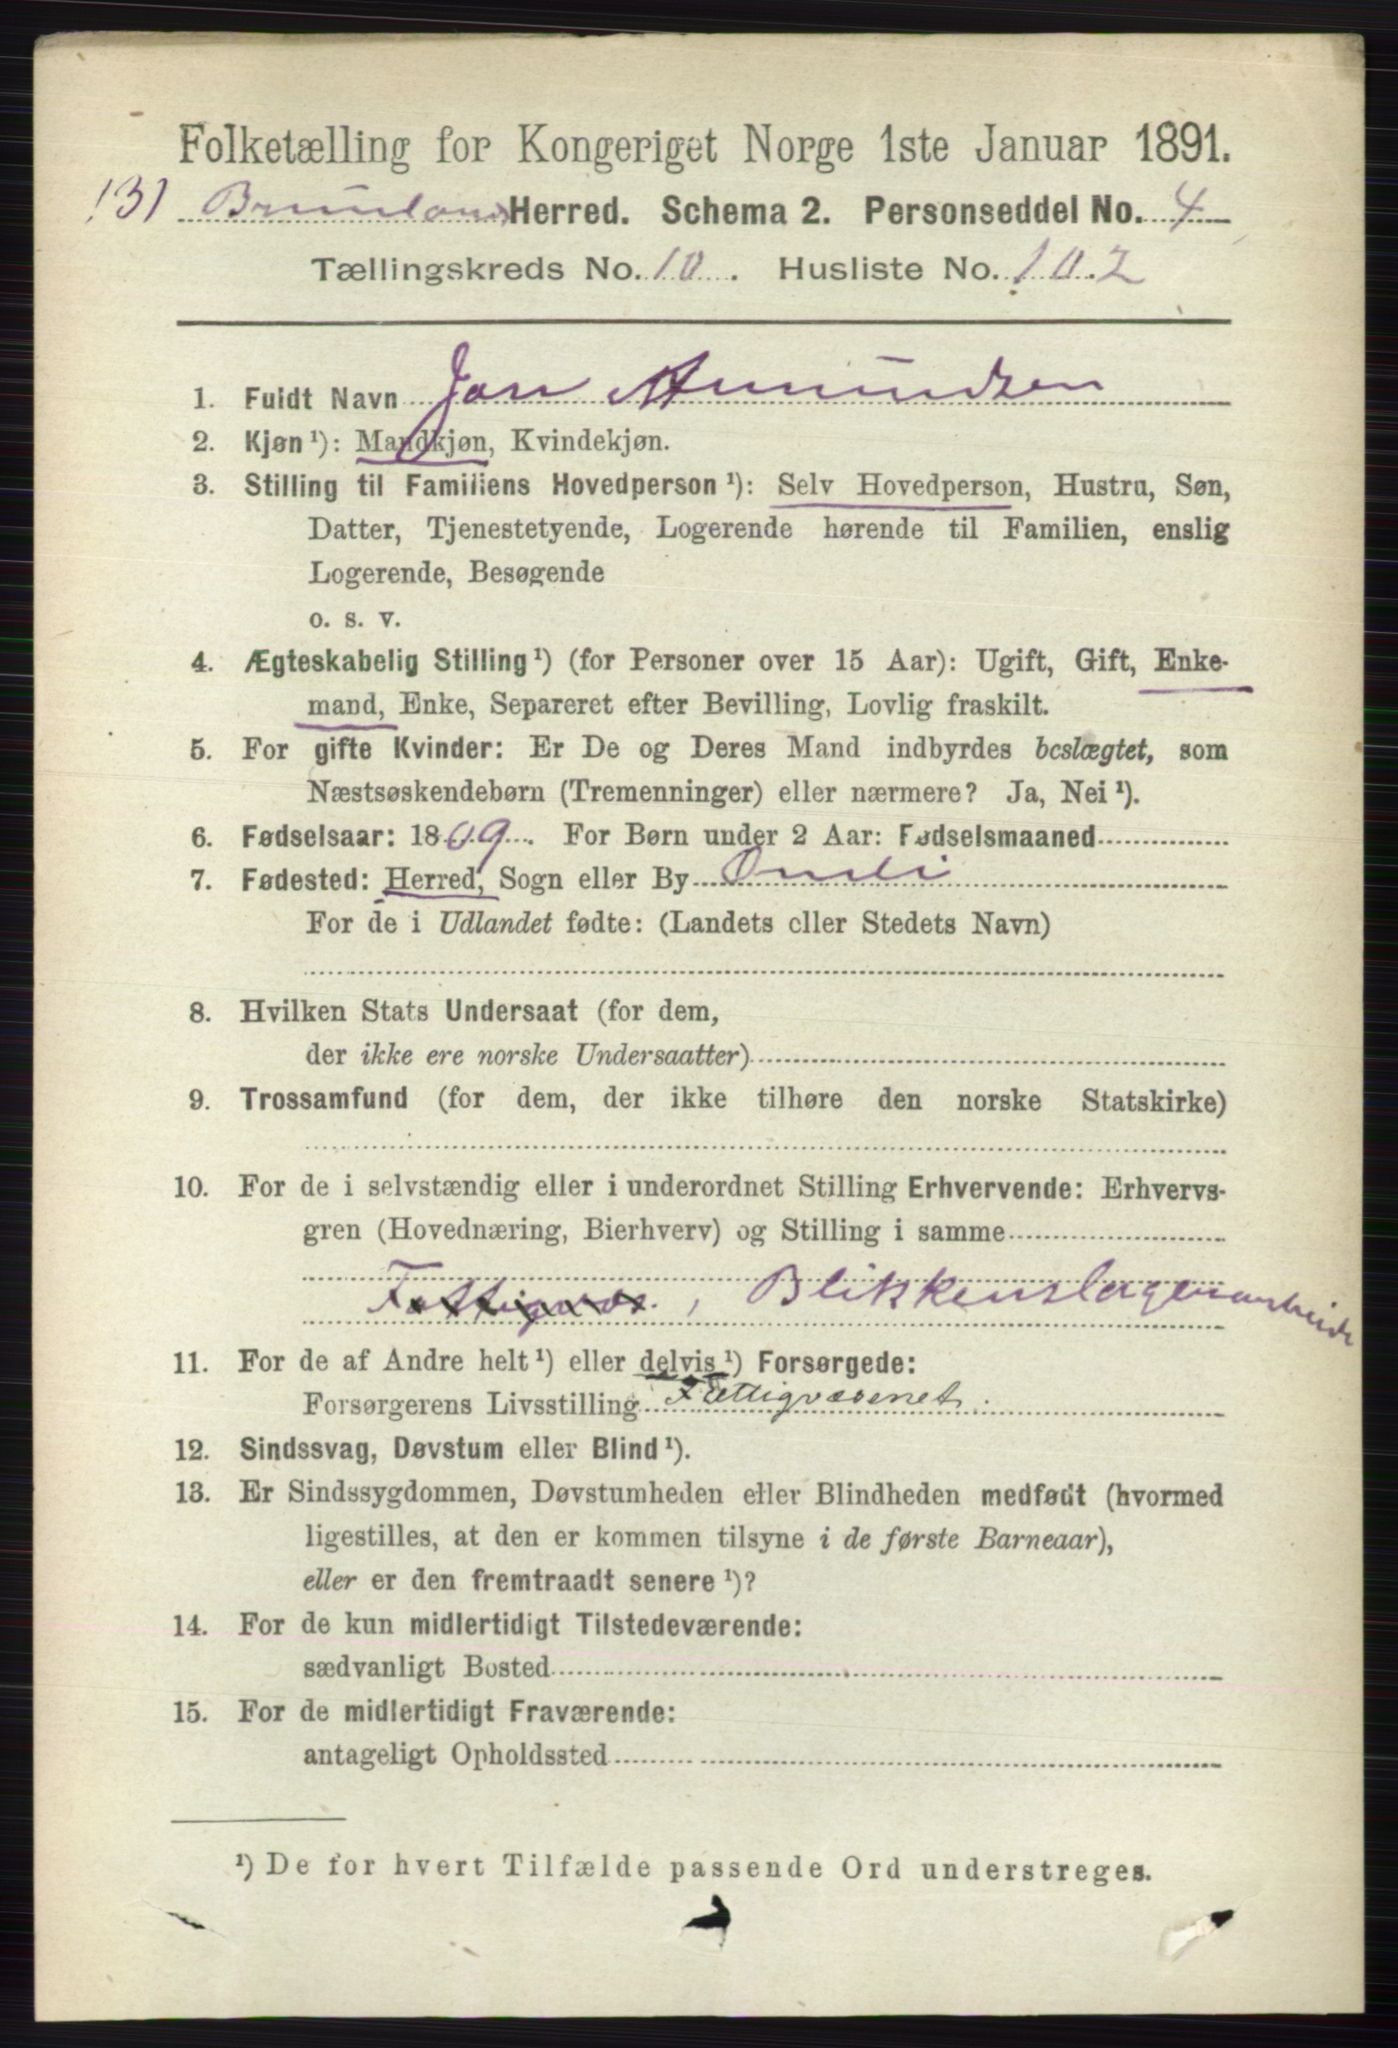 Folketælling for Kongeriget Norge 1ste Januar 1891.
131 Brunlanes Herred. Schema 2. Personseddel No. 4
Tællingskreds No. 10. Husliste No. 102
1. Fuldt Navn Jon Amundsen
2. Kjøn ¹): Mandkjøn, Kvindekjøn.
3. Stilling til Familiens Hovedperson ¹): Selv Hovedperson, Hustru, Søn,
Datter, Tjenestetyende, Logerende hørende til Familien, enslig
Logerende, Besøgende
o. s. v.
4. Ægteskabelig Stilling ¹) (for Personer over 15 Aar): Ugift, Gift, Enke-
mand, Enke, Separeret efter Bevilling, Lovlig fraskilt.
5. For gifte Kvinder: Er De og Deres Mand indbyrdes beslægtet, som
Næstsøskendebørn (Tremenninger) eller nærmere? Ja, Nei ¹).
6. Fødselsaar: 1809. For Børn under 2 Aar: Fødselsmaaned
7. Fødested: Herred, Sogn eller By Omli
For de i Udlandet fødte: (Landets eller Stedets Navn)
8. Hvilken Stats Undersaat (for dem,
der ikke ere norske Undersaatter)
9. Trossamfund (for dem, der ikke tilhøre den norske Statskirke)
10. For de i selvstændig eller i underordnet Stilling Erhvervende: Erhvervs-
gren (Hovednæring, Bierhverv) og Stilling i samme
Fattigvæs., Blikkenslagerarbeide
11. For de af Andre helt ¹) eller delvis ¹) Forsørgede:
Forsørgerens Livsstilling Fattigvæsenet.
12. Sindssvag, Døvstum eller Blind ¹).
13. Er Sindssygdommen, Døvstumheden eller Blindheden medfødt (hvormed
ligestilles, at den er kommen tilsyne i de første Barneaar),
eller er den fremtraadt senere ¹)?
14. For de kun midlertidigt Tilstedeværende:
sædvanligt Bosted
15. For de midlertidigt Fraværende:
antageligt Opholdssted
¹) De for hvert Tilfælde passende Ord understreges.